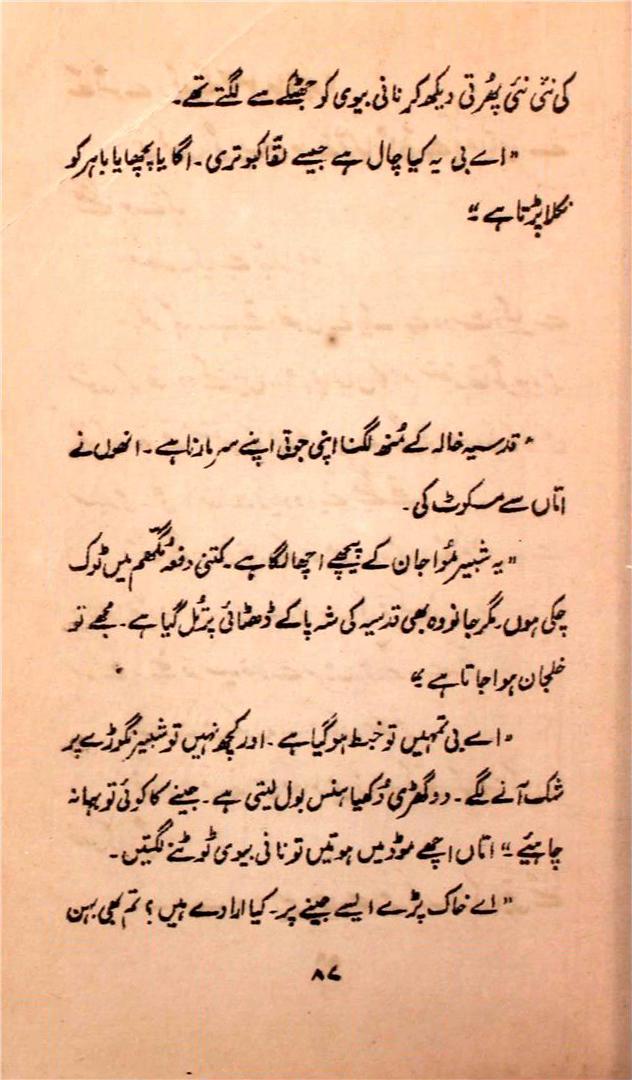 کی نئی نئی پھُرتی دیکھ کر نانی بیوی کو جھٹکے سے لگتے تھے۔
"اے بی یہ کیا چال ہے جیسے لقّا کبوتری۔ اگایا پچھایا باہر کو
نکلا پڑتا ہے"
"قدسیہ خالہ کے مُنھ لگنا اپنی جوتی اپنے سر مارنا ہے۔ انھوں نے
اتاں سے مسکوٹ کی۔
"یہ شبیر مُوا جان کے پیچھے اچھا لگا ہے۔ کتنی دفعہ میں ٹوک
چکی ہوں۔ مگر جانو وہ بھی قدسیہ کی شہ پا کے ڈھٹائی پر تُل گیا ہے۔ مجھے تو
خلجان ہوا جاتا ہے"
"اے بی تمہیں تو خبط ہو گیا ہے۔ اور کچھ نہیں تو شبیر نگوڑے پر
شک آنے لگے۔ دو گھڑی دُکھیا ہنس بول لیتی ہے۔ جینے کا کوئی تو بہانہ
چاہیئے" اتاں اچھے موڈ میں ہوتیں تو نانی بیوی ٹوٹنے لگتیں۔
"اے خاک پڑے ایسے جینے پر۔ کیا ارادے ہیں؟ تم بھی بہن
۸۷